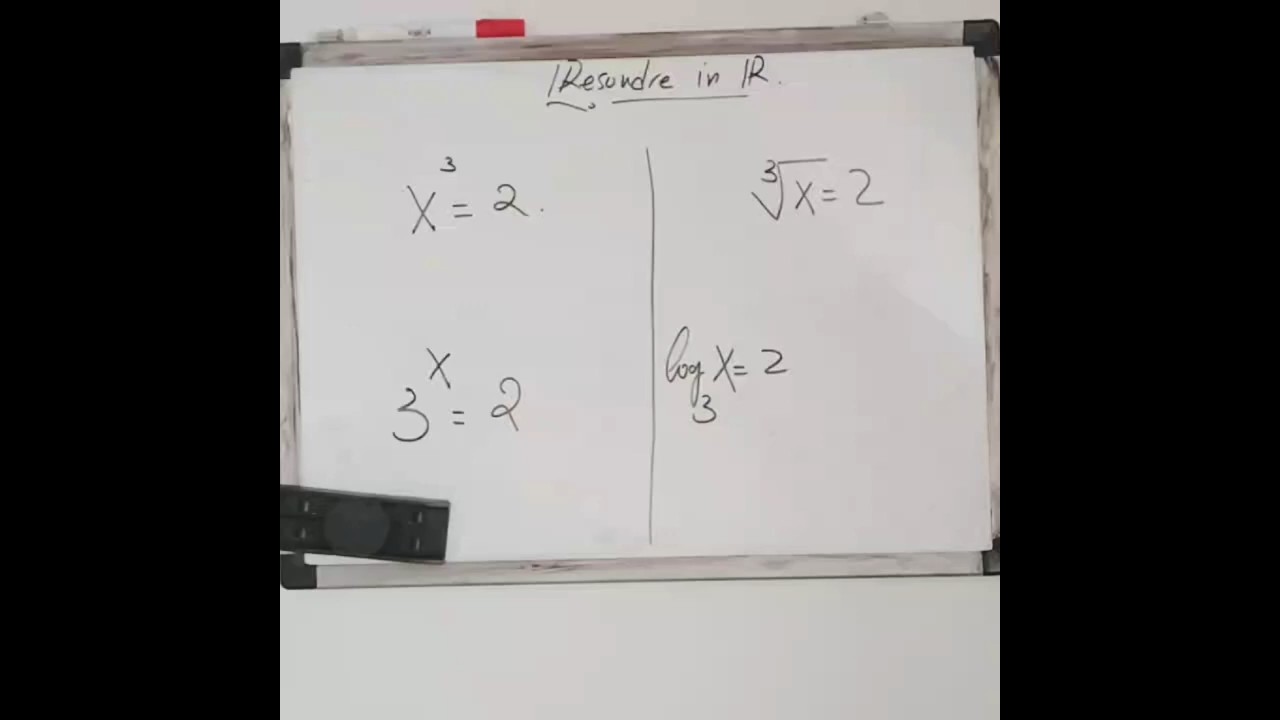 Resoudre in IR.
x³ = 2.
∛x = 2
3ˣ = 2
log₃ x = 2